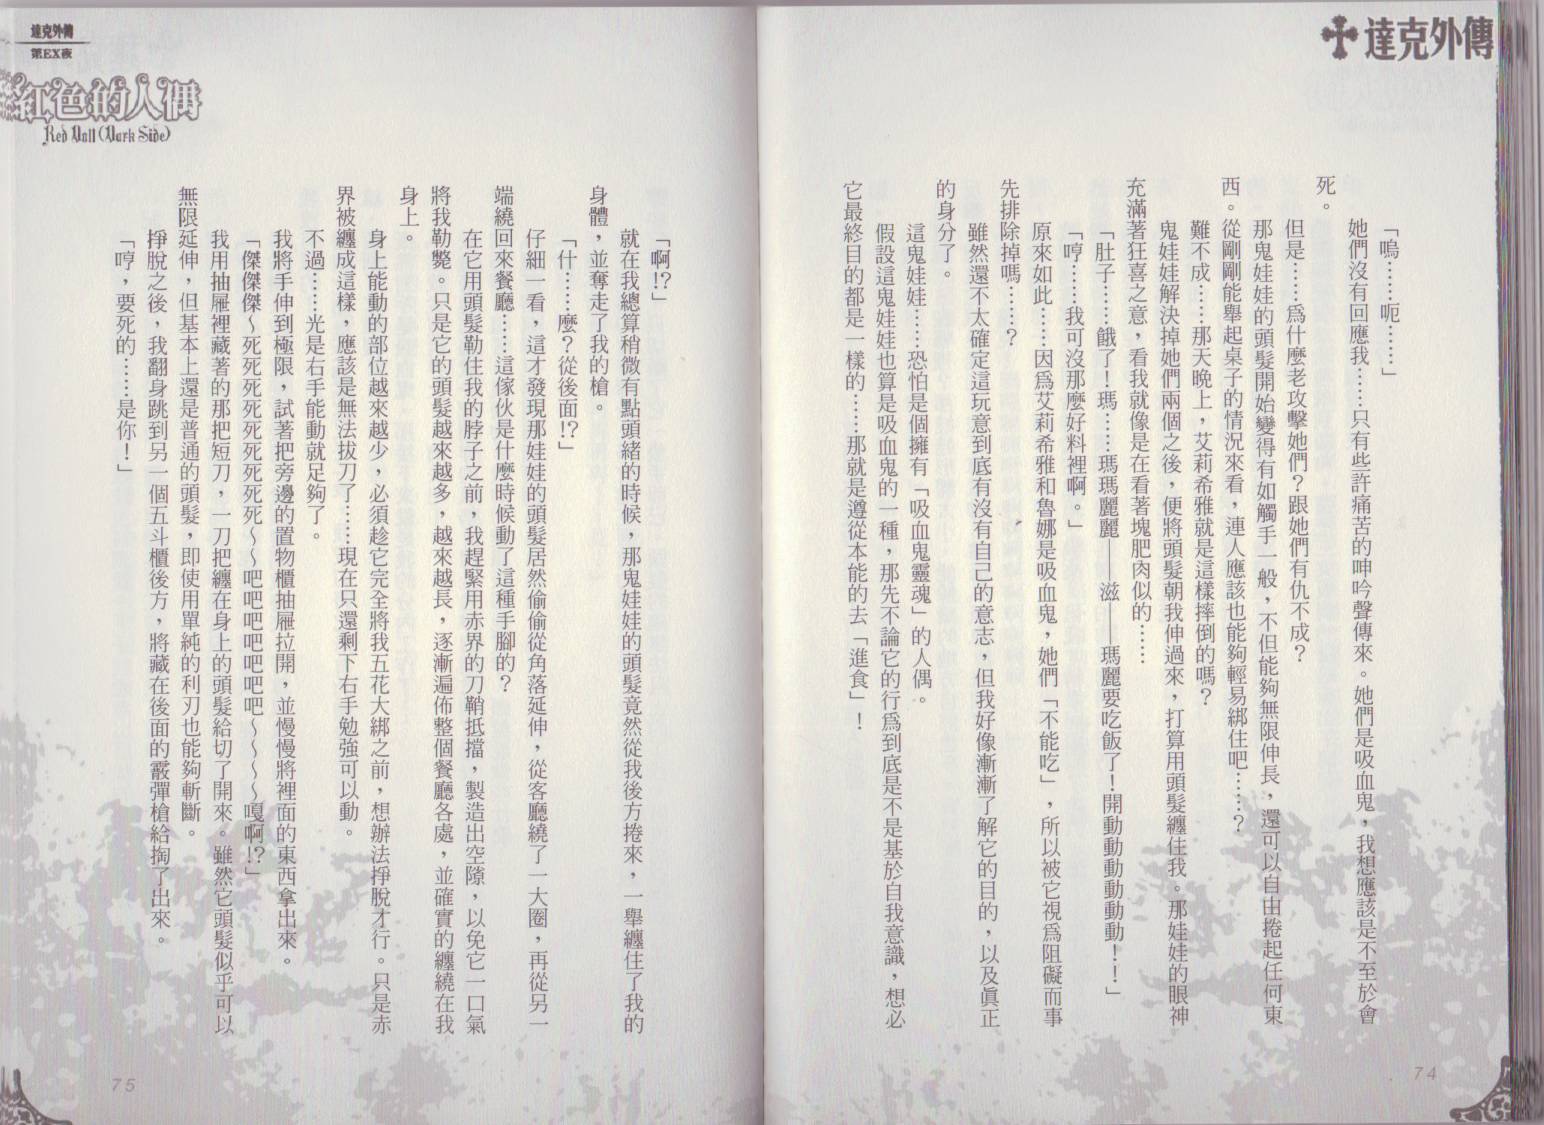 達克外傳
「嗚……呃……」
她們沒有回應我……只有些許痛苦的呻吟聲傳來。她們是吸血鬼，我想應該是不至於會
死。
但是……爲什麼老攻擊她們？跟她們有仇不成？
那鬼娃娃的頭髮開始變得有如觸手一般，不但能夠無限伸長，還可以自由捲起任何東
西。從剛剛能舉起桌子的情況來看，連人應該也能夠輕易綁住吧……？
難不成……那天晚上，艾莉希雅就是這樣摔倒的嗎？
鬼娃娃解決掉她們兩個之後，便將頭髮朝我伸過來，打算用頭髮纏住我。那娃娃的眼神
充滿著狂喜之意，看我就像是在看著塊肥肉似的……
「肚子……餓了！瑪……瑪瑪麗麗——滋——瑪麗要吃飯了！開動動動動動動！！」
「哼……我可沒那麼好料裡啊。」
原來如此……因爲艾莉希雅和魯娜是吸血鬼，她們「不能吃」，所以被它視爲阻礙而事
先排除掉嗎……？
雖然還不太確定這玩意到底有沒有自己的意志，但我好像漸漸了解它的目的，以及真正
的身分了。
這鬼娃娃……恐怕是個擁有「吸血鬼靈魂」的人偶。
假設這鬼娃娃也算是吸血鬼的一種，那先不論它的行爲到底是不是基於自我意識，想必
它最終目的都是一樣的……那就是遵從本能的去「進食」！
74
達克外傳
第EX夜
紅色的人偶
Red Doll (Dark Side)
「啊!?」
就在我總算稍微有點頭緒的時候，那鬼娃娃的頭髮竟然從我後方捲來，一舉纏住了我的
身體，並奪走了我的槍。
「什……麼？從後面!?」
仔細一看，這才發現那娃娃的頭髮居然偷偷從角落延伸，從客廳繞了一大圈，再從另一
端繞回來餐廳……這傢伙是什麼時候動了這種手腳的？
在它用頭髮勒住我的脖子之前，我趕緊用赤界的刀鞘抵擋，製造出空隙，以免它一口氣
將我勒斃。只是它的頭髮越來越多，越來越長，逐漸遍佈整個餐廳各處，並確實的纏繞在我
身上。
身上能動的部位越來越少，必須趁它完全將我五花大綁之前，想辦法掙脫才行。只是赤
界被纏成這樣，應該是無法拔刀了……現在只還剩下右手勉強可以動。
不過……光是右手能動就足夠了。
我將手伸到極限，試著把旁邊的置物櫃抽屜拉開，並慢慢將裡面的東西拿出來。
「傑傑傑～死死死死死死死死死～～吧吧吧吧吧吧吧～～～～嘎啊!?」
我用抽屜裡藏著的那把短刀，一刀把纏在身上的頭髮給切了開來。雖然它頭髮似乎可以
無限延伸，但基本上還是普通的頭髮，即使用單純的利刃也能夠斬斷。
掙脫之後，我翻身跳到另一個五斗櫃後方，將藏在後面的霰彈槍給掏了出來。
「哼，要死的……是你！」
75